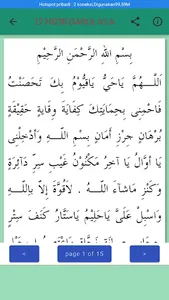 Hotspot pribadi : 2 koneksi,Digunakan99,59M
بِسْمِ اللهِ الرَّحْمَنِ الرَّحِيْمِ
اَللّٰهُمَّ يَاحَيُّ يَاقَيُّوْمُ بِكَ تَحَصَّنْتُ
فَاحْمِنِى بِحِمَايَتِكَ كِفَايَةَ وِقَايَةَ حَقِيْقَةِ
بُرْهَانِ حِرْزِ اَمَانِ بِسْمِ اللهِ وَاَدْخِلْنِى
يَا اَوَّلُ يَا آخِرُ مَكْنُوْنَ غَيْبِ سِرِّ دَائِرَةِ
وَكَنْزِ مَاشَآءَ اللهُ . لَاقُوَّةَ اِلاَّ بِاللهِ
وَاسْبِلْ عَلَيَّ يَاحَلِيْمُ يَاسَتَّارُ كَنَفَ سِتْرِ
<
page 1 of 15
>